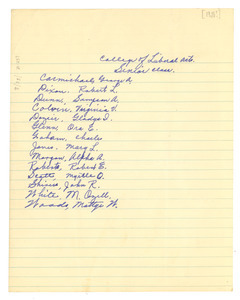 [1931]
College of Liberal Arts.
Senior Class.
Carmichael, George A.
Dixon, Robert L.
Dunn, Sampson A.
Colvin, Virginia V.
Dozier, Gladys I.
Glenn, Ora E.
Graham, Charles
Jones, Mary L.
Morgan, Alpha A.
Roberts, Robert E.
Scott, O.
Shivers, John R.
White, M. Ozell
Woods, Mattye W.